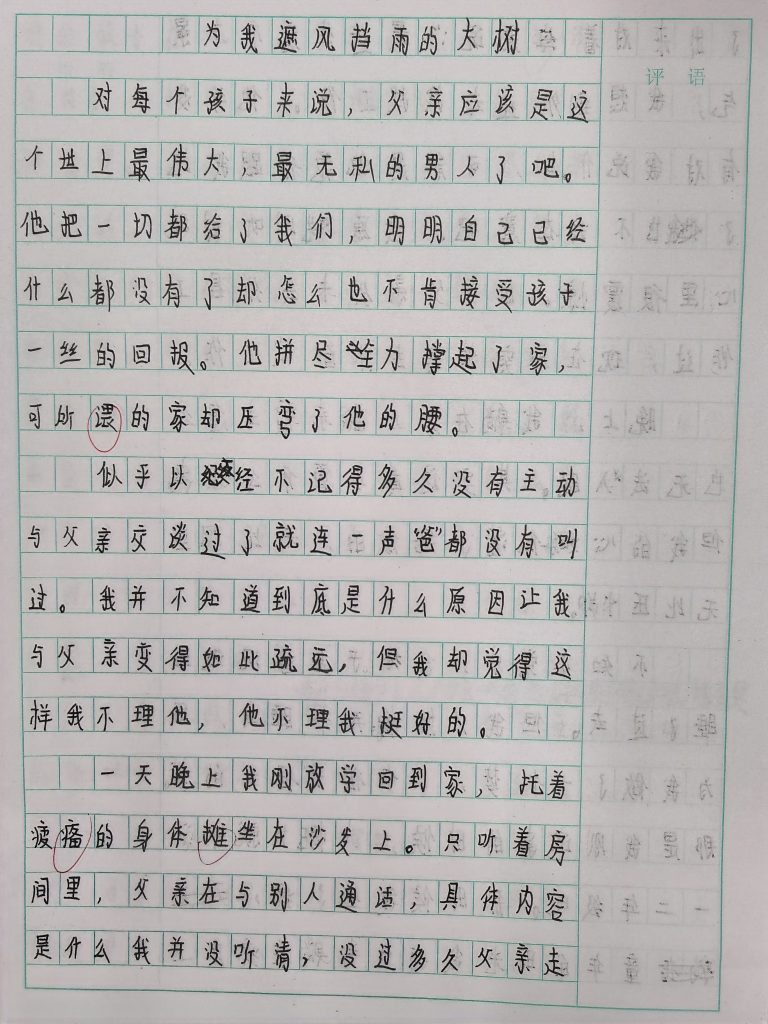 为我遮风挡雨的大树
评语
对每个孩子来说，父亲应该是这
个世上最伟大，最无私的男人了吧。
他把一切都给了我们，明明自己已经
什么都没有了却怎么也不肯接受孩子
一丝的回报。他拼尽全力撑起了家，
可所谓的家却压弯了他的腰。
似乎以经不记得多久没有主动
与父亲交谈过了就连一声“爸”都没有叫
过。我并不知道到底是什么原因让我
与父亲变得如此疏远，但我却觉得这
样我不理他，他不理我挺好的。
一天晚上我刚放学回到家，托着
疲痛的身体摊坐在沙发上。只听着房
间里，父亲在与别人通话，具体内容
是什么我并没听清，没过多久父亲走